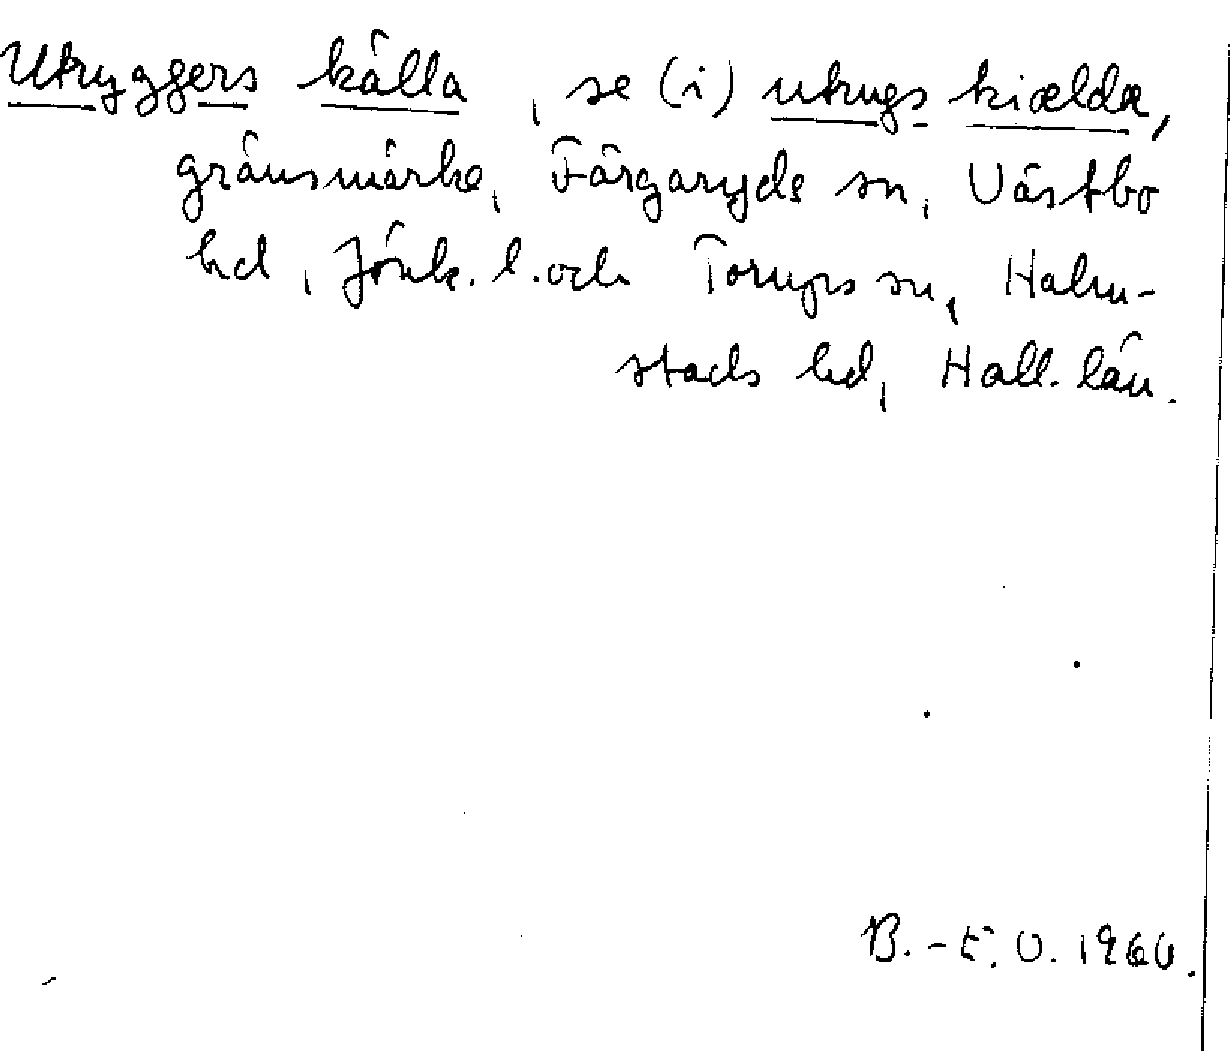 Utryggers källa, se (i) utrugs kiælda,
gränsmärke, Färgaryds sn, Västbo
hd, Jönk. l. och Torups sn, Halm-
stads hd, Hall. län.
B.-E. O. 1960.